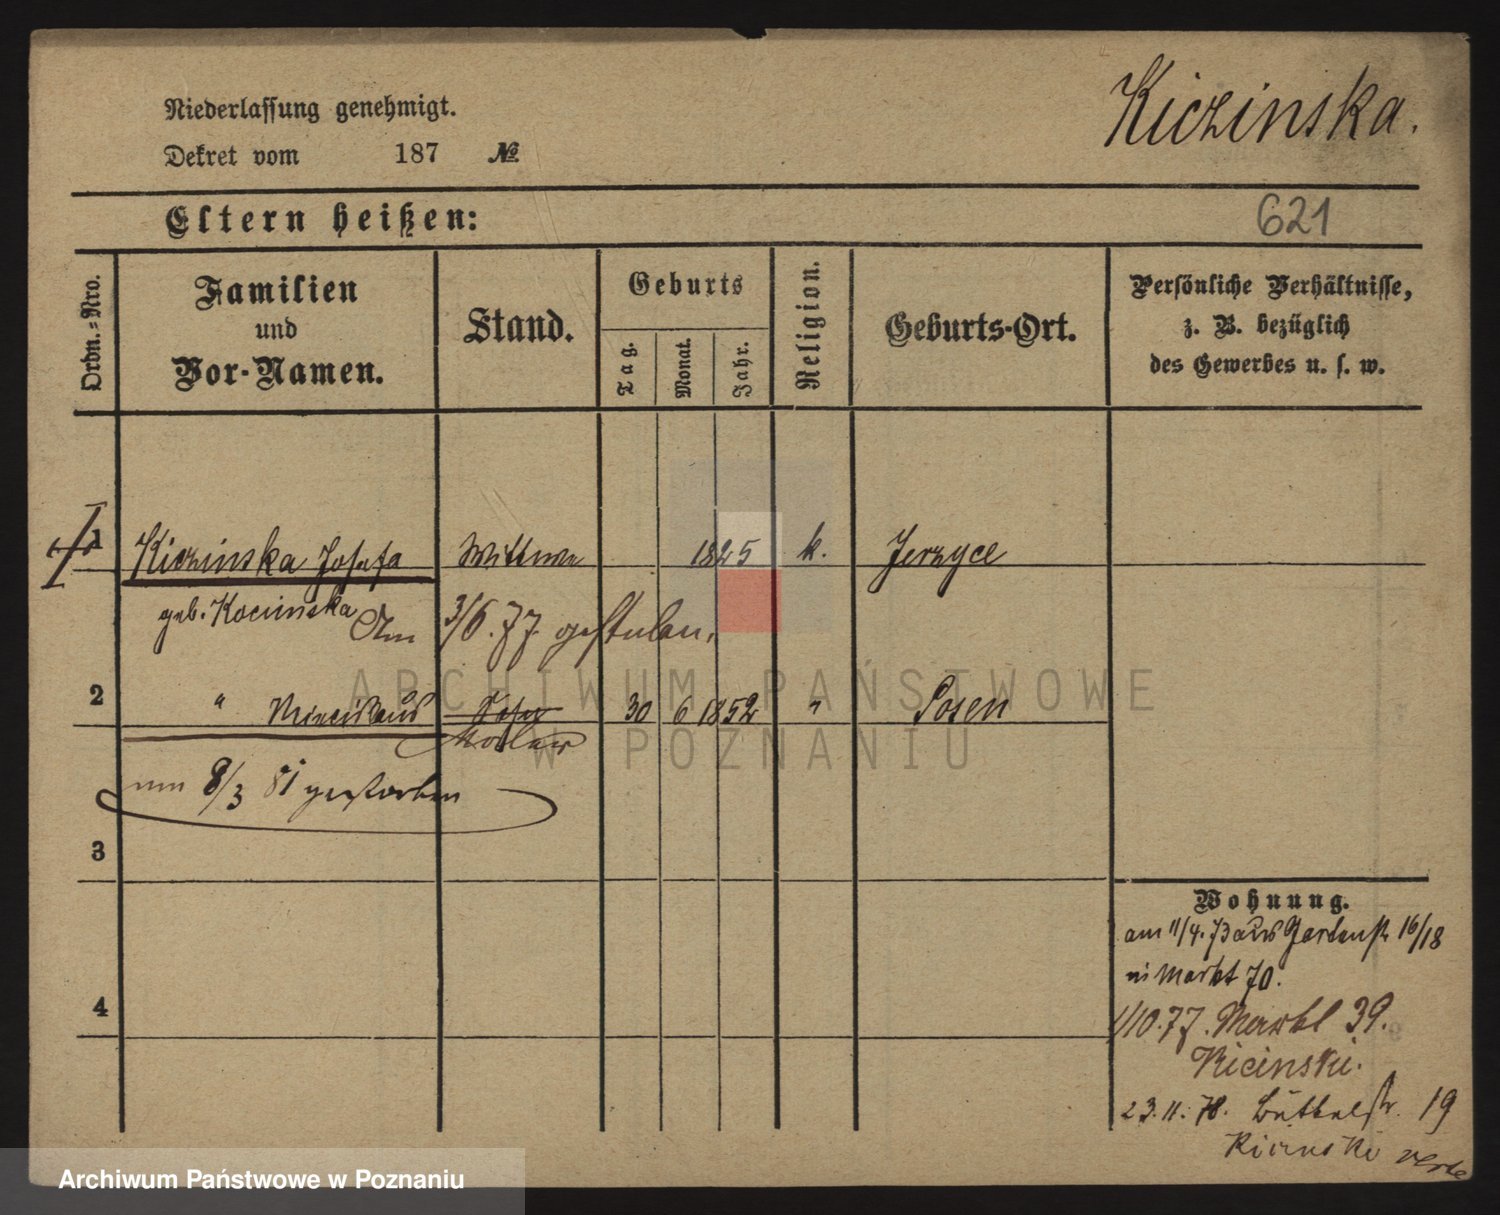 Niederlassung genehmigt.
Dekret vom 187 №
Kiczinska.
Eltern heißen:
621
Ordn.=Nro.
Familien
und
Vor-Namen.
Stand.
Geburts
Tag.
Monat.
Jahr.
Religion.
Geburts-Ort.
Persönliche Verhältnisse,
z. B. bezüglich
des Gewerbes u. s. w.
1 Kiczinska Josefa Wittwe 1825 k. Jerzyce
geb. Kocinska Am 3/6. 77. gestorben.
2 " 30 6 1852 " Posen
am 8/3 81 gestorben
3
4
Wohnung.
am 11/4. 73 aus Gartenstr 16/18
Markt 70.
1/10.77. Markt 39.
Kicinski.
23.11.78. Büttelstr. 19
Kicinski verte
ARCHIWUM PAŃSTWOWE
W POZNANIU
Archiwum Państwowe w Poznaniu